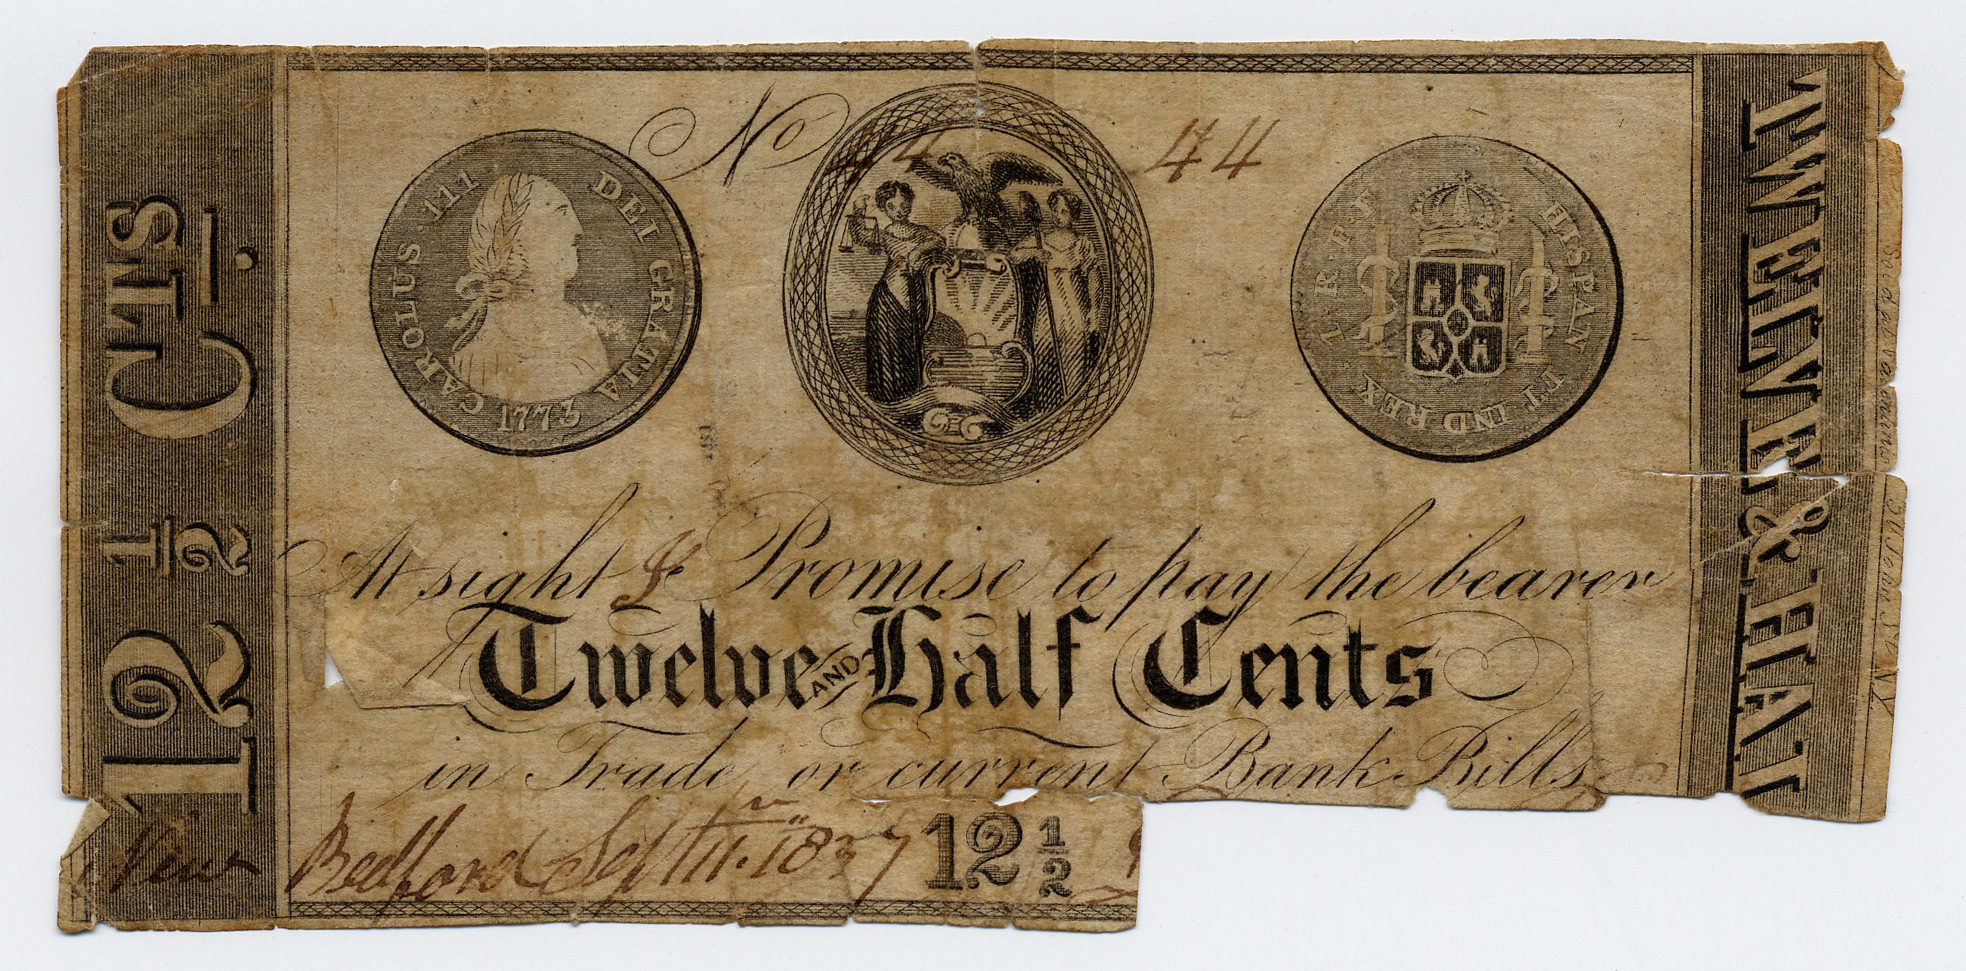 No 44 44
CAROLUS · 111 DEI GRATIA
1773
HISPAN ET IND REX
At sight I Promise to pay the bearer
Twelve AND Half Cents
in Trade or current Bank Bills
New Bedford Sept 11th 1837 12 1/2
12 1/2 CTS.
TWELVE & HALF